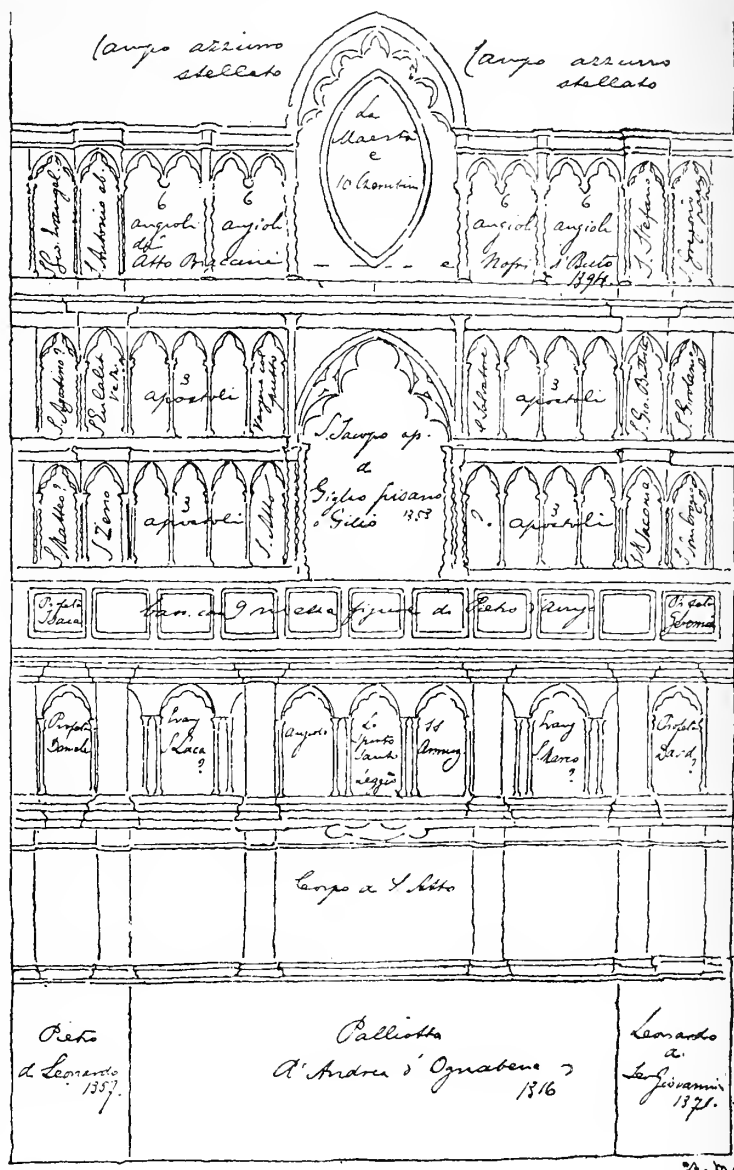 Campo azzurro
stellato
Campo azzurro
stellato
La
Maestà
e
10 Cherubini
S. Gio. Evangel.
S. Antonio ab.
6
angioli
da
Atto Braccini
6
angioli
e
6
angioli
Nofri
6
angioli
d'Buto
1394.
S. Stefano
S. Agostino?
S. Eulalia
3
apostoli
Vergine col
putto
S. Jacopo ap.
di
Giglio pisano
o Gilio 1353
S. Salvatore
3
apostoli
S. Gio. Battista
S. Girolamo
S. Matteo?
S. Zeno
3
apostoli
S. Atto
?
3
apostoli
Profeta
Isaca
con 9 mezza figure di Pietro d'Arrigo
Profeta
Gerema
Profeta
Daniele
Evang
S. Luca
?
Angelo
Lo
Spirito
Santo
SS
Annunz.
Evang
S. Marco
?
Profeta
David
?
Corpo di S. Atto
Pietro
di Leonardo
1357.
Palliotto
d'Andrea d'Ognabene
1316
Leonardo
di
Ser Giovanni
1371.